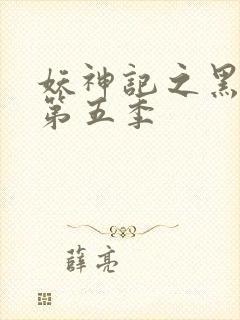 妖神记之黑
第五季
薛亮